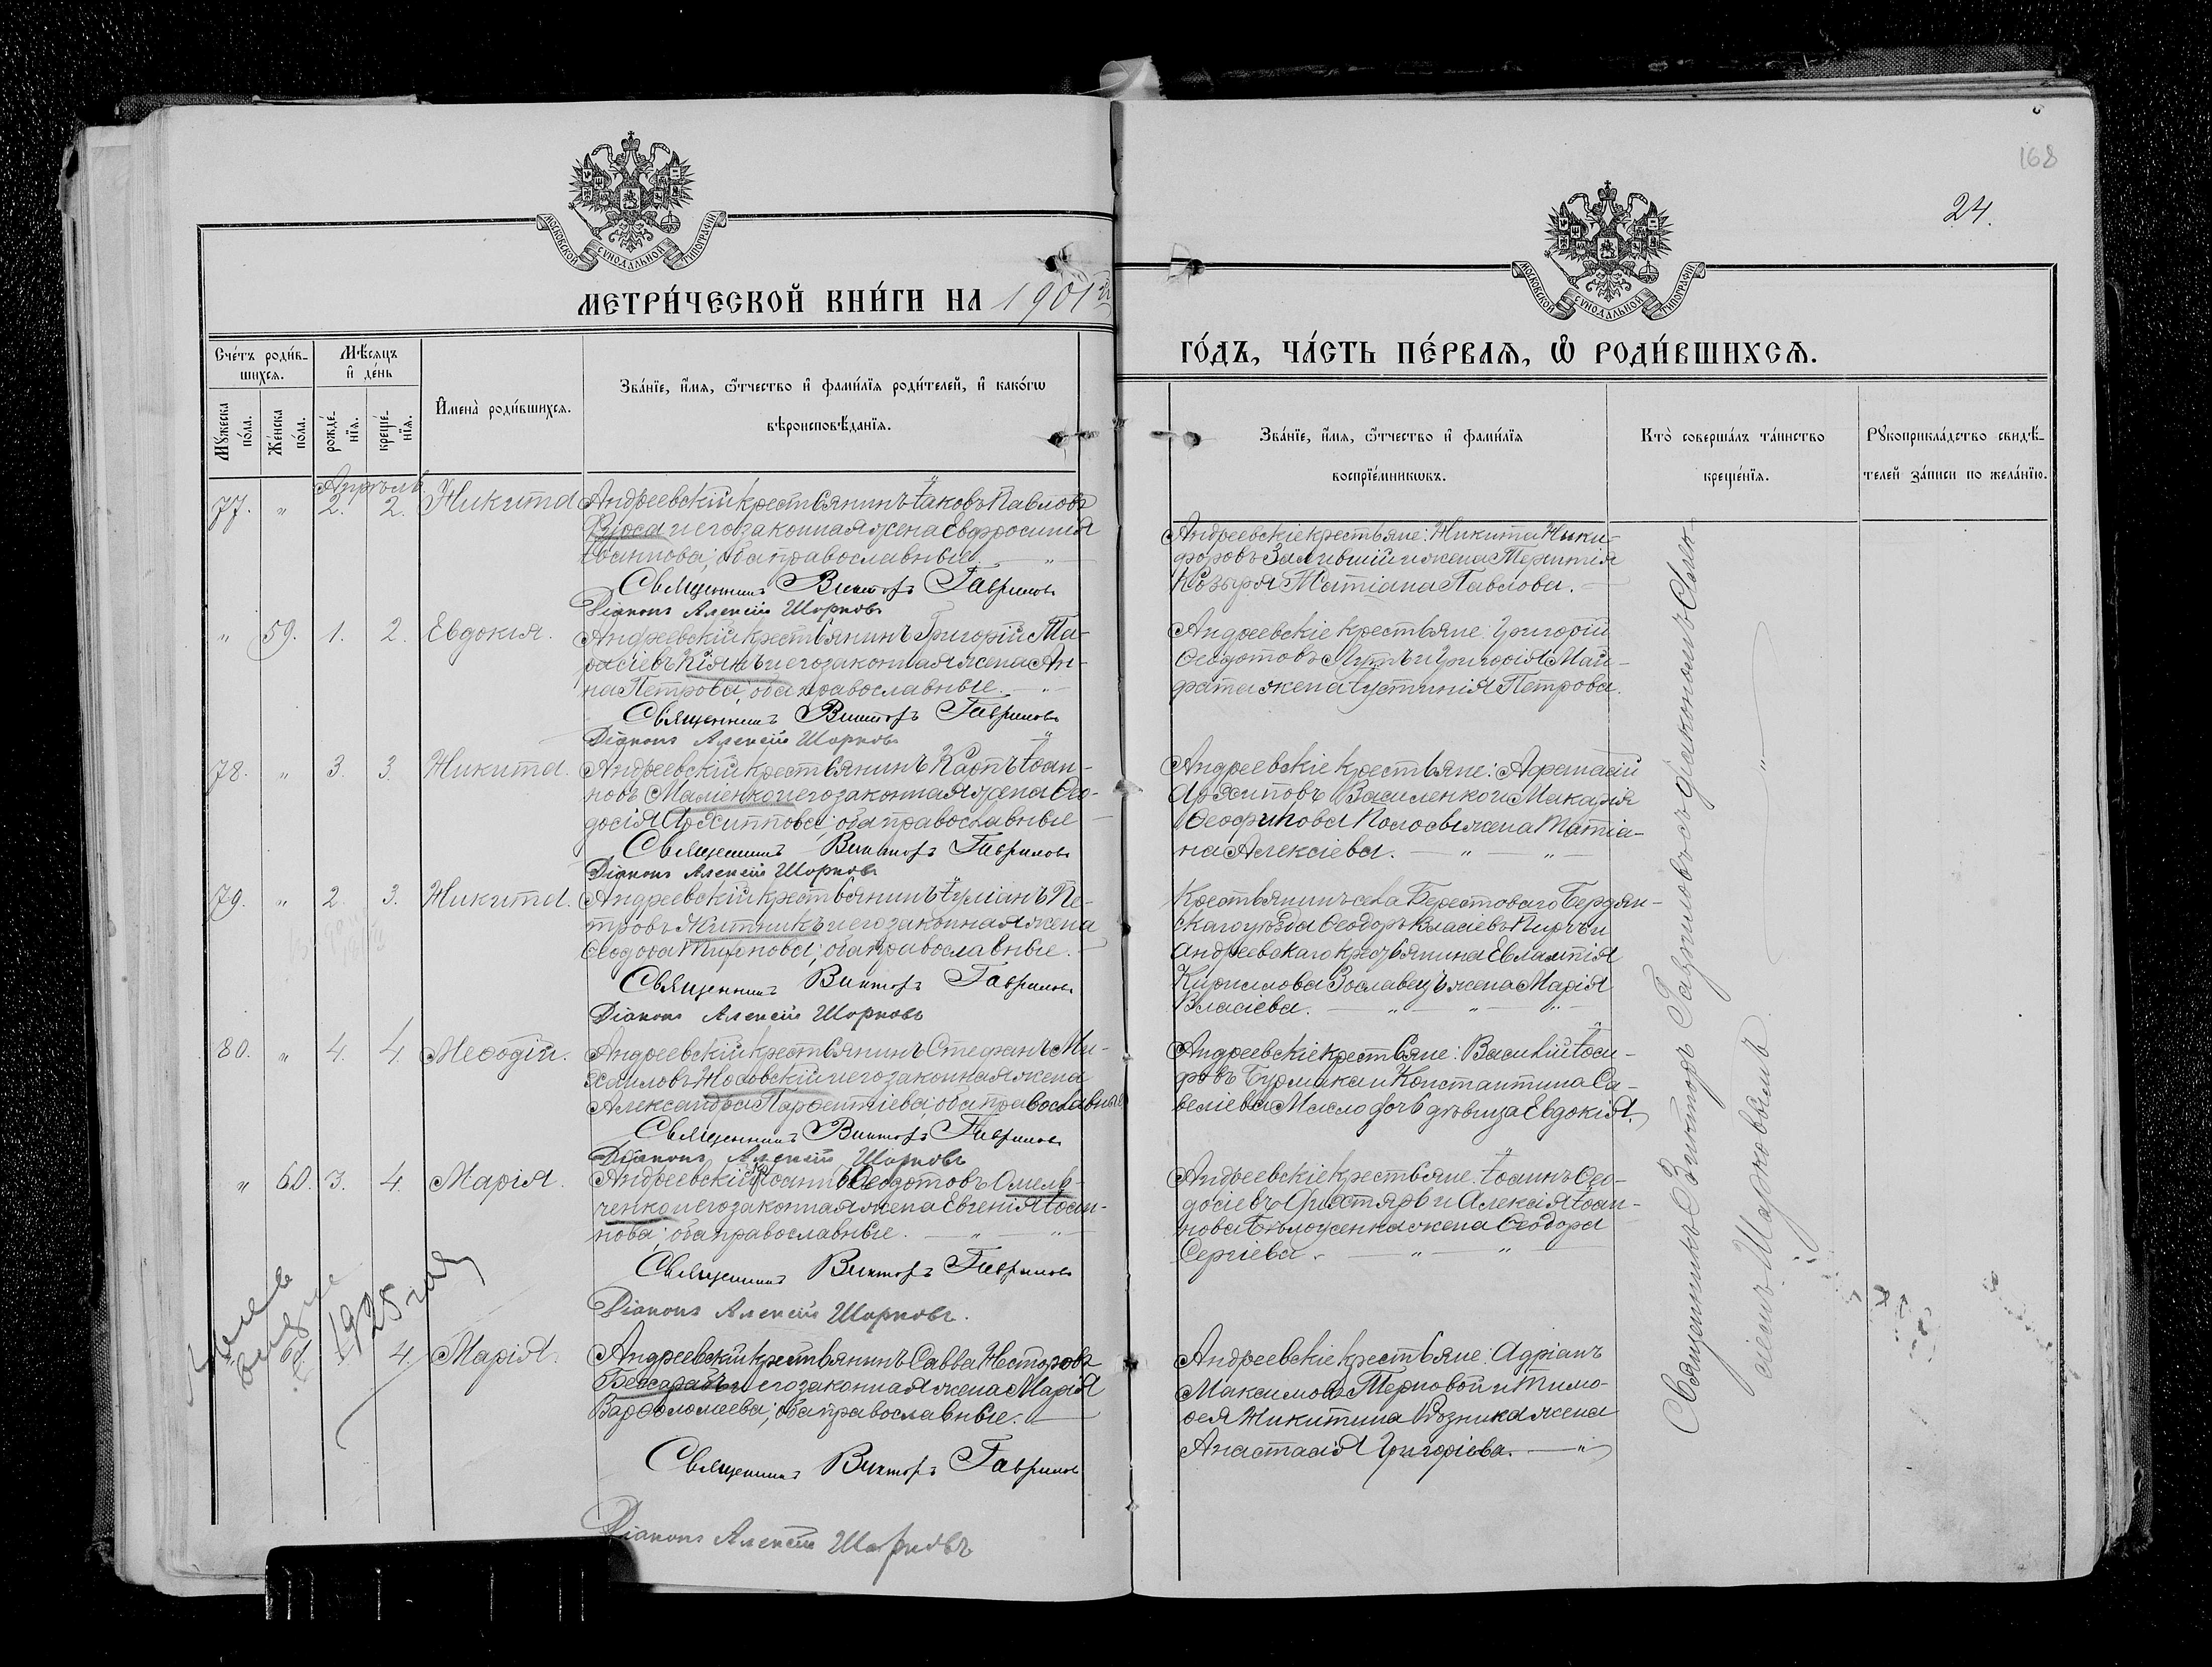 168
24.
МОСКОВСКОЙ СѴНОДАЛЬНОЙ ТИПОГРАФІИ
МЕТРИ́ЧЕСКОЙ КНИ́ГИ НА 1901й
МОСКОВСКОЙ СѴНОДАЛЬНОЙ ТИПОГРАФІИ
ГО́ДЪ, ЧА́СТЬ ПЕ́РВАѦ, Ѡ҆ РОДИ́ВШИХСѦ.
Сче́тъ роди́в-
шихсѧ.
Мѣ́сѧцъ
и҆ де́нь
И҆мена̀ роди́вшихсѧ.
Зва́нїе, и҆́мѧ, ѻ҆́тчество и҆ фами́лїѧ роди́телей, и҆ како́гѡ
вѣроисповѣ́данїѧ.
Мꙋ́жеска
по́ла.
Же́нска
по́ла.
рожде́-
нїѧ.
креще́-
нїѧ.
Зва́нїе, и҆́мѧ, ѻ҆́тчество и҆ фами́лїѧ
воспрїе́мникѡвъ.
Кто̀ соверша́лъ та́инство
креще́нїѧ.
Рꙋкоприкла́дство свидѣ́-
телей за́писи по жела́нїю.
Апрѣль
77. " 2. 2. Никита
Андреевскій крестьянинъ Іаковъ Павловъ
и его законная жена Евфросинія
Іоаннова; оба православные.
Священникъ Викторъ Гавриловъ
Діаконъ Алексій Шарковъ
Андреевскіе крестьяне: Никита Ники-
форовъ и жена Терентія
Козыря Татіана Павлова.
" 59. 1. 2. Евдокія.
Андреевскій крестьянинъ Григорій Та-
расіевъ Кіянъ и его законная жена Ан-
на Петрова; оба православные.
Священникъ Викторъ Гавриловъ
Діаконъ Алексій Шарковъ
Андреевскіе крестьяне: Григорій
Ѳеодотовъ и Григорія Май-
жена Іустинія Петрова.
78. " 3. 3. Никита.
Андреевскій крестьянинъ Карпъ Іоан-
новъ Маленко и его законная жена Ѳео-
досія Архиппова; оба православные
Священникъ Викторъ Гавриловъ
Діаконъ Алексій Шарковъ
Андреевскіе крестьяне: Аѳанасій
Архиповъ Василенко и Макарія
жена Татіа-
на Алексіева.
79. " 2. 3. Никита.
Андреевскій крестьянинъ Іуліанъ Пе-
тровъ Житникъ и его законная жена
Ѳеодора оба православные.
Священникъ Викторъ Гавриловъ
Діаконъ Алексій Шарковъ
Крестьянинъ села Берестоваго Бердян-
скаго уѣзда Ѳеодоръ Власіевъ и
Андреевскаго крестьянина Евлампія
Кириллова жена Марія
Власіева.
80. " 4. 4. Меѳодій.
Андреевскій крестьянинъ Стефанъ Ми-
хаиловъ Носовскій и его законная жена
Александра Парѳентіева; оба православные
Священникъ Викторъ Гавриловъ
Діаконъ Алексій Шарковъ
Андреевскіе крестьяне: Василій Іоси-
фовъ Бурлака и Константина Са-
веліева Масло дочь дѣвица Евдокія.
" 60. 3. 4. Марія.
Андреевскій кр. Іоаннъ Ѳеодотовъ Омель-
ченко и его законная жена Евгенія Іоан-
нова; оба православные.
Священникъ Викторъ Гавриловъ
Діаконъ Алексій Шарковъ.
Андреевскіе крестьяне: Іоаннъ Ѳео-
досіевъ и Алексія Іоан-
нова жена Ѳеодора
Сергіева.
1925 году
61. 4. Марія.
Андреевскій крестьянинъ Савва Несторовъ
Бессарабъ и его законная жена Марія
Варѳоломеева; оба православные.
Священникъ Викторъ Гавриловъ
Діаконъ Алексій Шарковъ
Андреевскіе крестьяне: Адріанъ
Максимовъ Терновой и Тимо-
ѳея Никитина жена
Анастасія Григоріева.
Священникъ Викторъ Гавриловъ съ діакономъ Алек-
сіемъ Шарковымъ